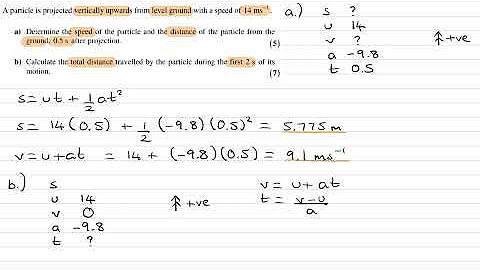 A particle is projected vertically upwards from level ground with a speed of 14 ms⁻¹.
a) Determine the speed of the particle and the distance of the particle from the
ground, 0.5 s after projection.
(5)
b) Calculate the total distance travelled by the particle during the first 2 s of its
motion.
(7)
a.) s ?
u 14
v ?
a -9.8
t 0.5
↑ +ve
s = ut + 1/2 at²
s = 14(0.5) + 1/2 (-9.8)(0.5)² = 5.775 m
v = u + at = 14 + (-9.8)(0.5) = 9.1 ms⁻¹
b.) s
u 14
v 0
a -9.8
t ?
↑ +ve
v = u + at
t = v-u/a